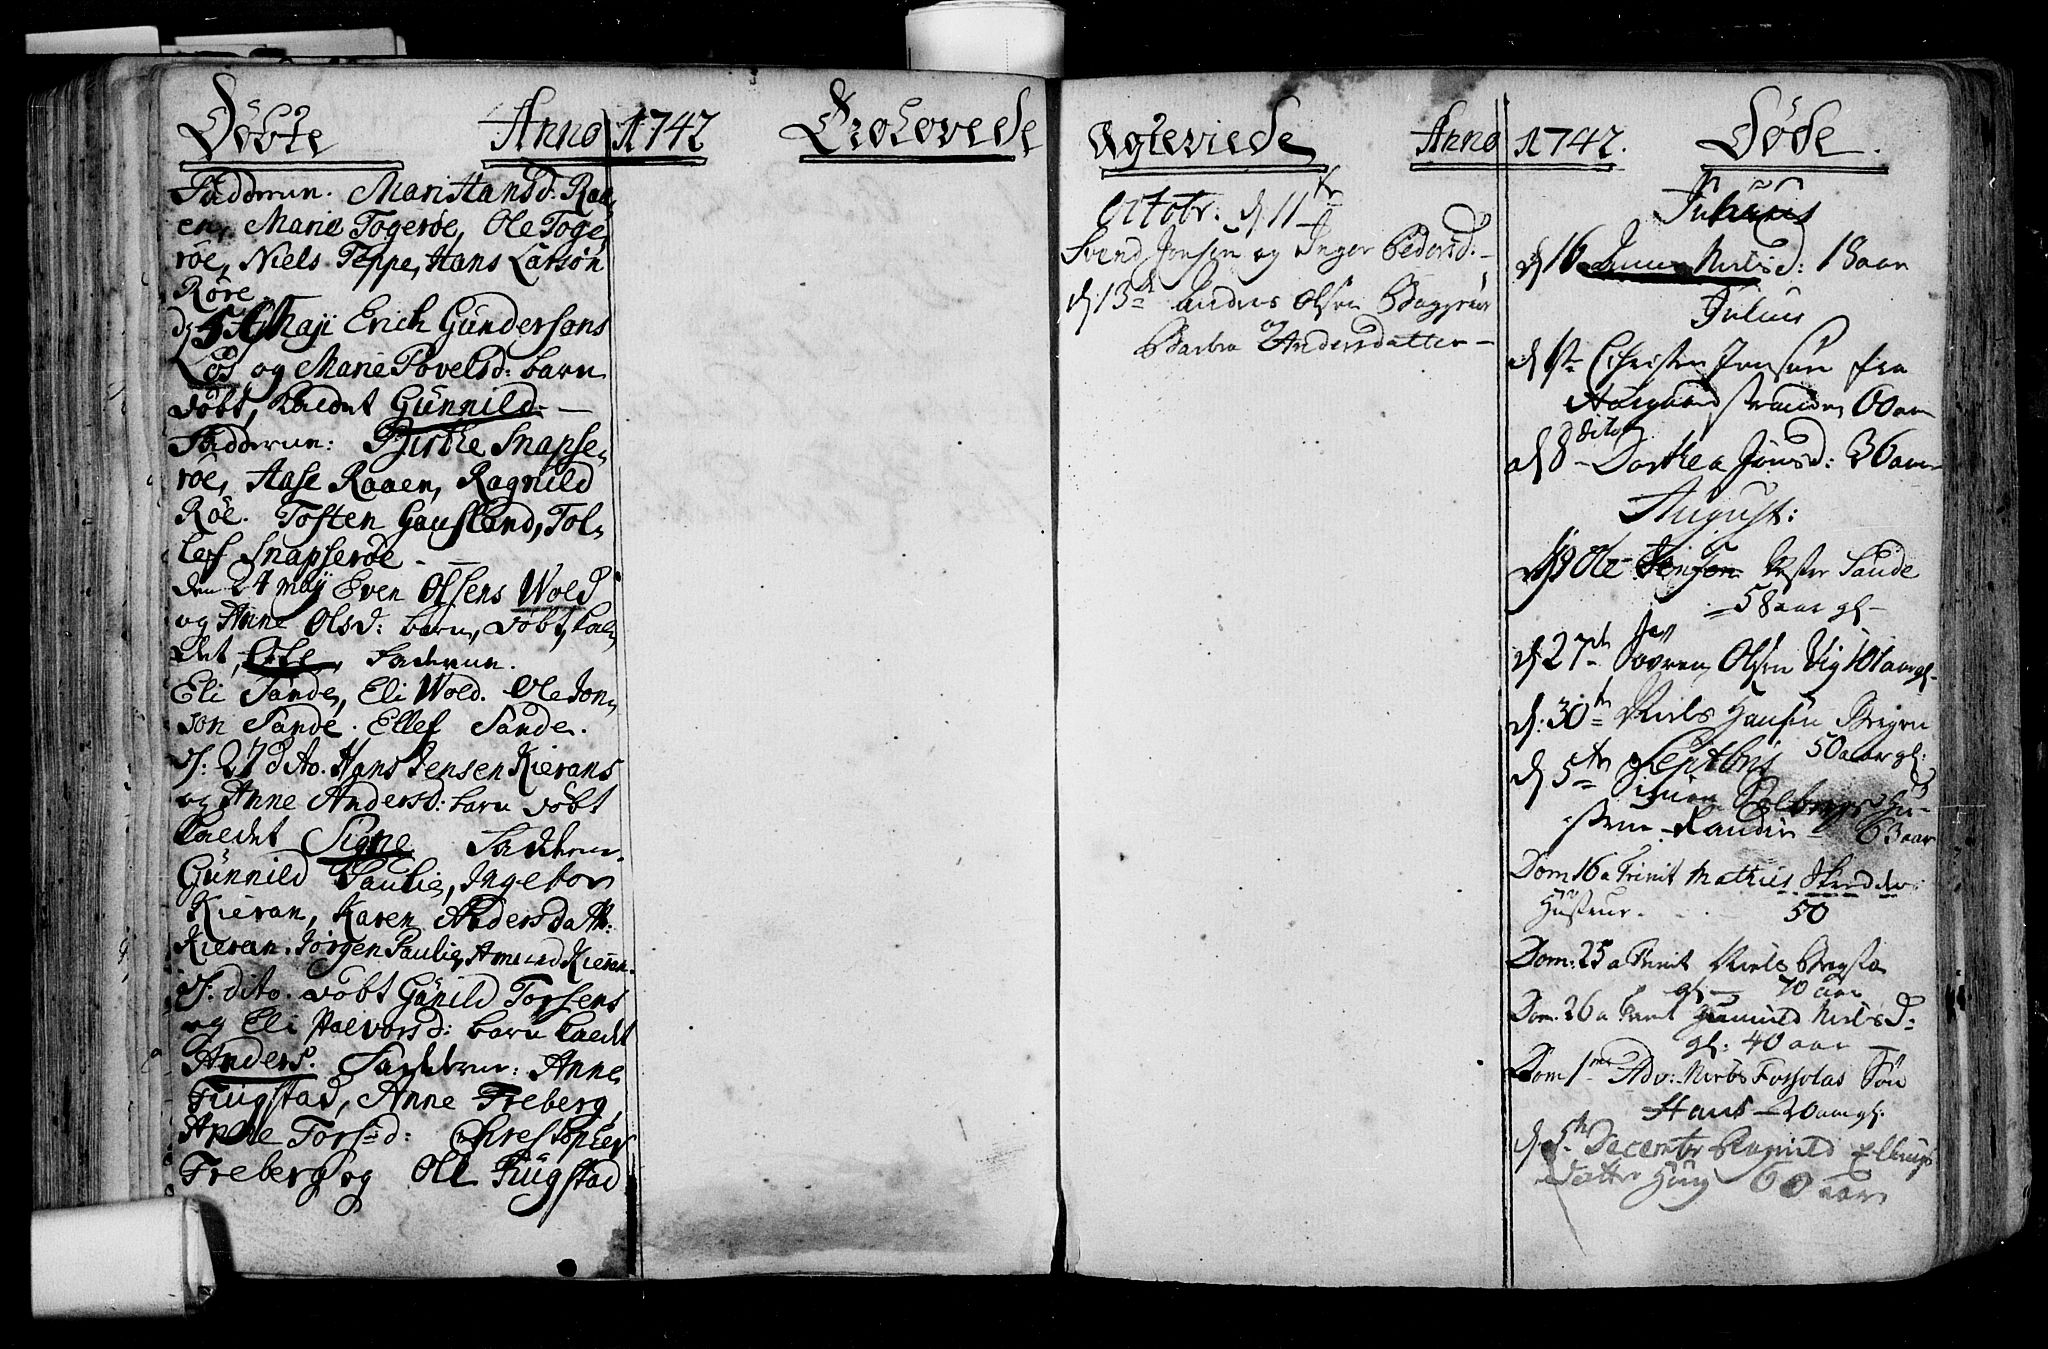 Døbte Anno 1742 Trolovede
Fadderne. Mari Hansd: Raa,
en, Marie Togerøe, Ole Toge,
røe, Niels Teppe, Hans Larsøn
Røre
d: Maji Erich Gündersøns
Løs og Marie Povelsd: barn
døbt, kaldet Günnild. —
Fadderne: Birthe Snapse,
røe, Aase Raaen, Ragnild
Røe. Tosten Gausland, Tol,
lef Snapserøe —
den 24 Maij Even Olsens Wold
og Anne Olsd: barn, døbt, kal,
det, Ole, Fadderne.
Eli Sande, Eli Wold. Ole Jon,
son Sande. Ellef Sande.
d: 27 dito. Hans Jensen Kierans
og Anne Andersd: barn døbt
kaldet Signe Fadderne.
Günnild Paulie, Ingebor
Kieran, Karen Andersdatt:
Kieran. Jørgen Paulie, Amund Kieran.
d: dito. døbt Günild Torsens
og Eli Halvorsd: barn kaldet
Anders. Fadderne: Anne
Fiugstad, Anne Freberg,
Anne Torsd: Christopher
Freberg og Ole Fiugstad
Ægteviede Anno 1742. Døde.
Octobr: d 11
Svend Jensen og Inger Pedersd: —
d 13 Anders Olsen
og
Barbra Andersdatter —
d 16 Nielsd: 18 aar
Julius
d 1ste Christen Jensen fra
Aasgaardstranden 60 aar
dito
d 8 — Dorthea Jonsd: 36 aar
August:
Ole Jensen Sande
— 58 aar gl —
d 27de Søvren Olsen Vig 101 aar gl.
d: 30te Niels Hansen
50 aar gl:
Septbris
d 5te Simen Hu-
strue Randi 63 aar
Dom 16 a Trinit Mathies Skredders
Hustrue. 50
Dom: 25 a Trinit Niels
gl — 70 aar
Dom. 26 a Trinit Gunnild Niels D:
gl: 40 aar —
Dom 1me Adv: Niels Fossolas Søn
Hans — 20 aar gl:
d 5te December Ragnild
datter Houg 60 aar